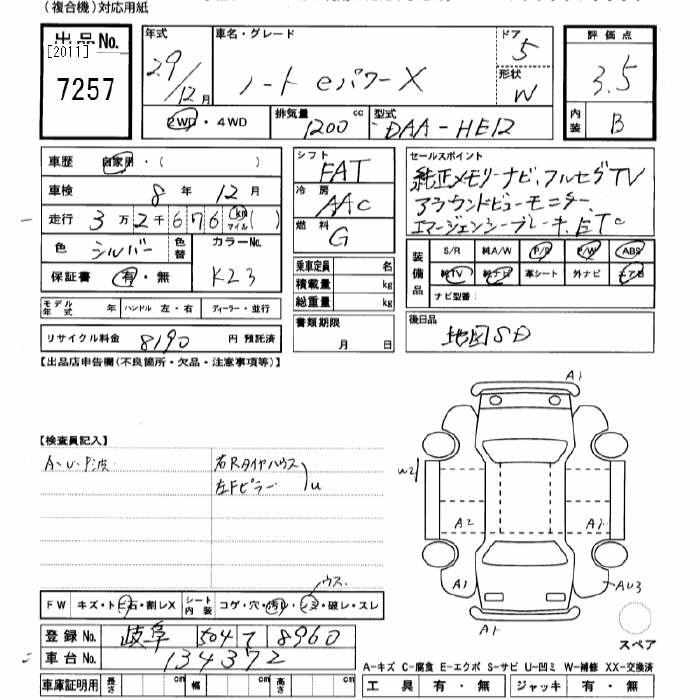 (複合機)対応用紙
出品No. [2011] 7257
年式 29/12月
車名・グレード ノート eパワーX
ドア 5
形状 W
評価点 3.5
内装 B
2WD・4WD
排気量 1200cc
型式 DAA-HE12
車歴 自家用・( )
車検 8年 12月
走行 3万2千676 km マイル ( )
色 シルバー 色替 カラーNo. K23
保証書 有・無
モデル年式 年 ハンドル 左・右 ディーラー・並行
リサイクル料金 8190 円 預託済
シフト FAT
冷房 AAC
燃料 G
乗車定員 名
積載量 kg
総重量 kg
書類期限 月 日
セールスポイント
純正メモリーナビ、フルセグTV
アラウンドビューモニター、
エマージェンシーブレーキ、ETC
装備品 S/R 純A/W P/S P/W ABS
純TV 純ナビ 革シート 外ナビ エアB
ナビ型番:
後日品 地図SD
【出品店申告欄(不良箇所・欠品・注意事項等)】
【検査員記入】
A・U・P波
右Rタイヤハウス
左Fピラー U
A1
W2
A2 A1
A1 AU3
A1
スペア
ウス
FW キズ・トビ石・割レX シート内装 コゲ・穴・汚レ・シミ・破レ・スレ
登録No. 岐阜 504 て 8960
車台No. 134372
A-キズ C-腐食 E-エクボ S-サビ U-凹ミ W-補修 XX-交換済
車庫証明用 長さ cm 幅 cm 高さ cm
工具 有・無 ジャッキ 有・無